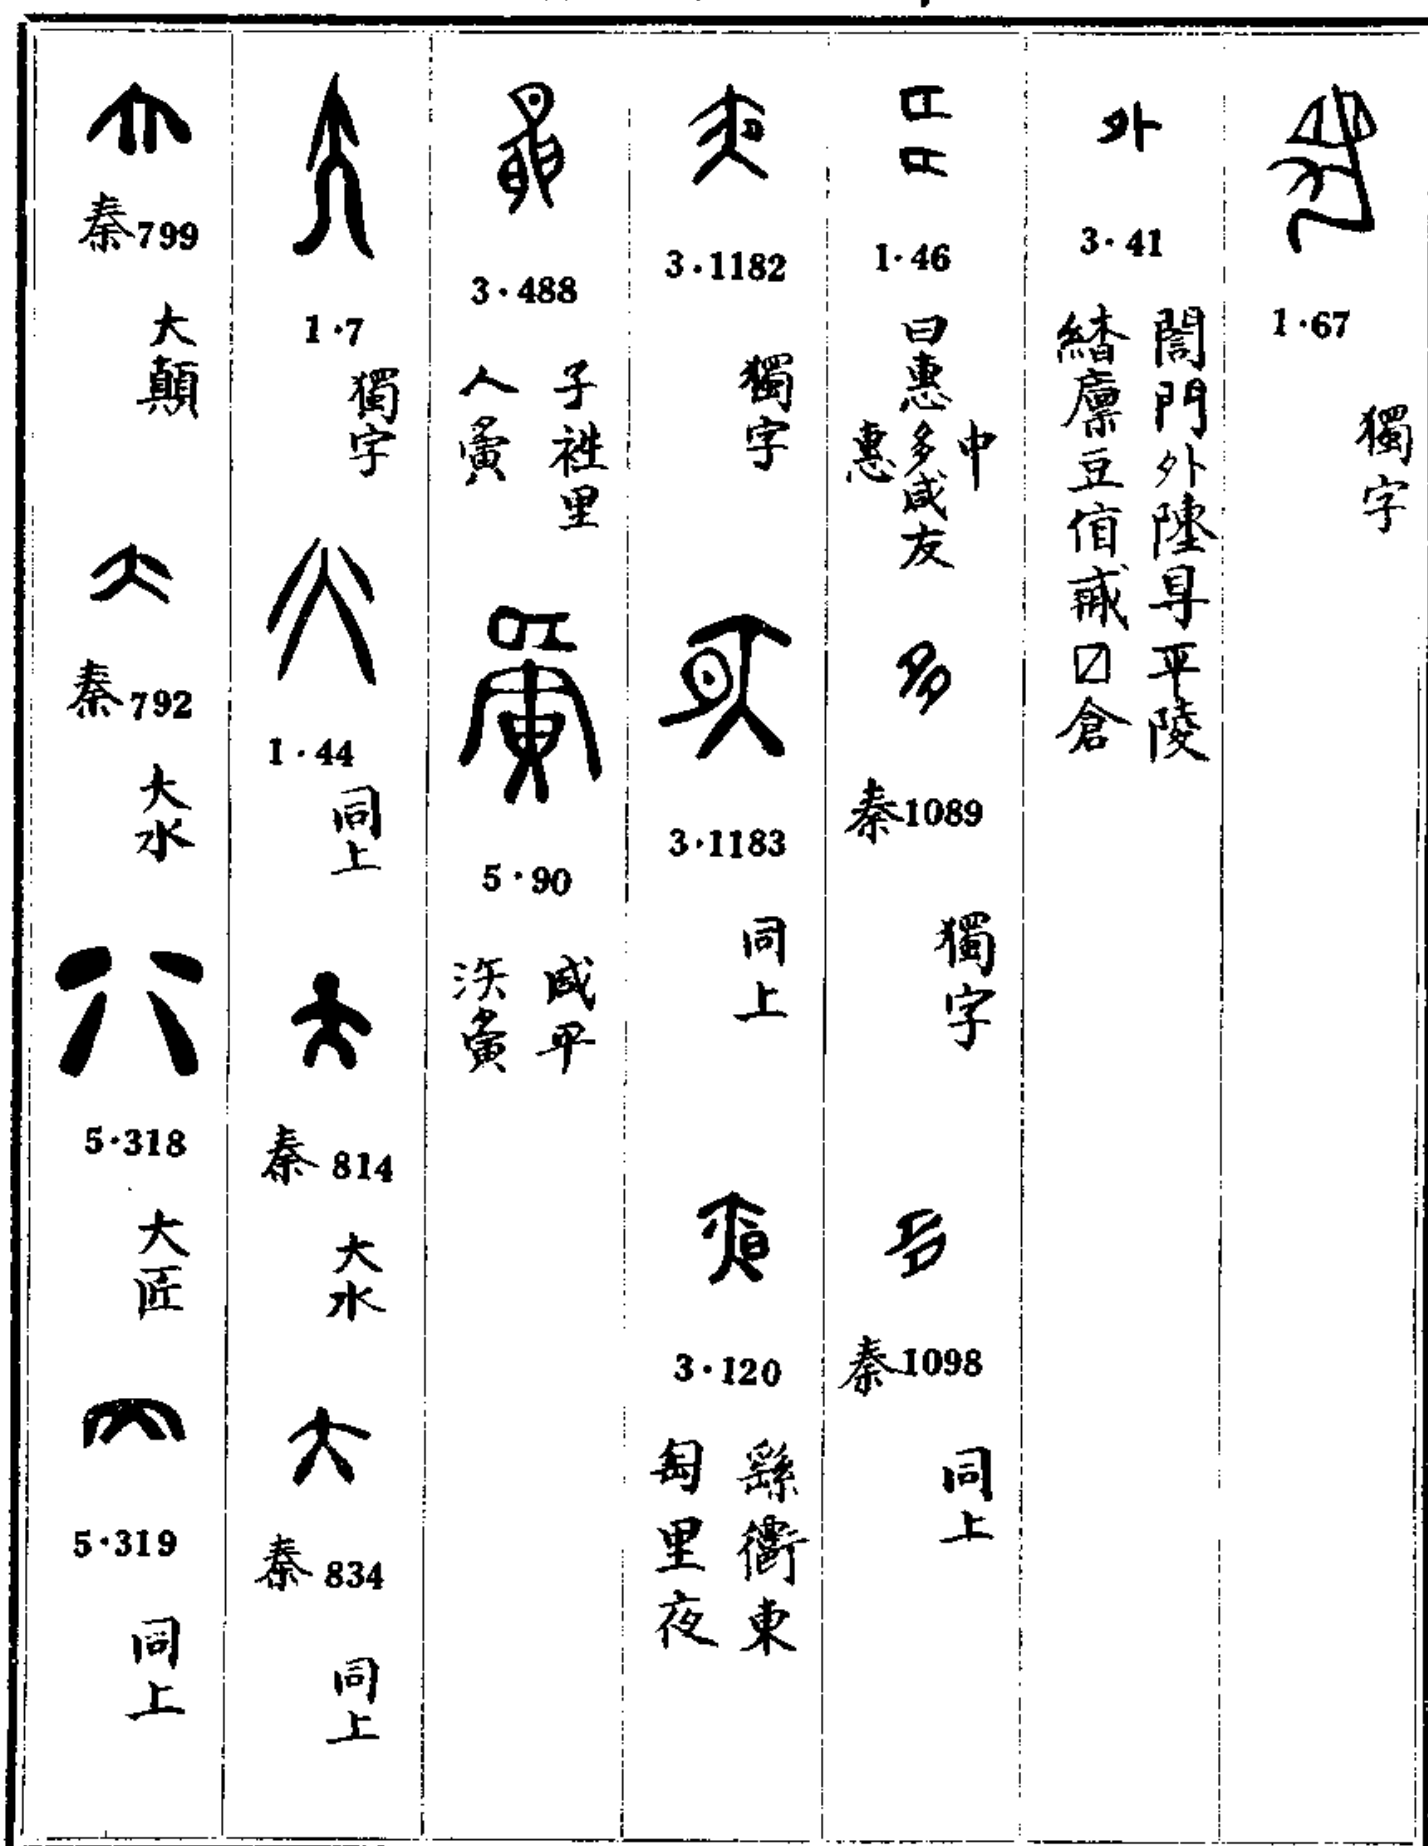 1·67
獨字
外
3·41
門外平陵
廩豆倉
1·46
中
曰惠多咸友
惠
多
秦1089
獨字
多
秦1098
同上
3·1182
獨字
3·1183
同上
3·120
繇衢東
匋里夜
3·488
子里
人
5·90
咸平
1·7
獨字
1·44
同上
大
秦814
大水
大
秦834
同上
大
秦799
大顛
大
秦792
大水
5·318
大匠
5·319
同上